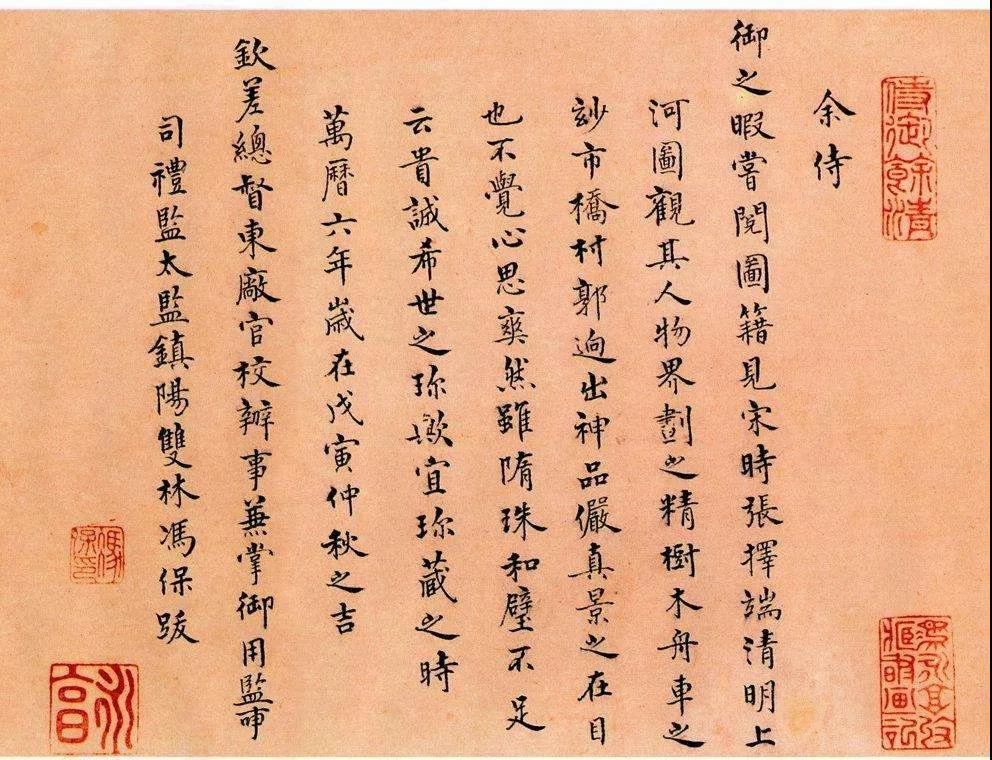 侍御餘清
余侍
御之暇嘗閱圖籍見宋時張擇端清明上
河圖觀其人物界劃之精樹木舟車之
玅市橋村郭逈出神品儼真景之在目
也不覺心思爽然雖隋珠和璧不足
云貴誠希世之珎歟宜珎藏之時
萬曆六年歲在戊寅仲秋之吉
欽差總督東廠官校辦事兼掌御用監印
司禮監太監鎮陽雙林馮保跋
馮保印